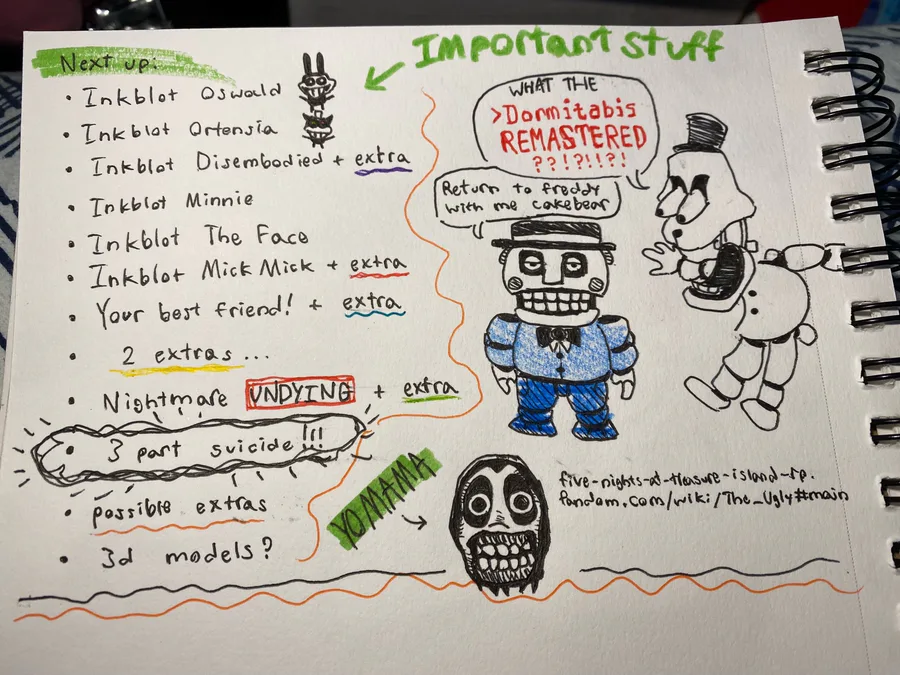 Important Stuff
Next up:
• Inkblot Oswald
• Inkblot Ortensia
• Inkblot Disembodied + extra
• Inkblot Minnie
• Inkblot The Face
• Inkblot Mick Mick + extra
• Your best friend! + extra
• 2 extras...
• Nightmare UNDYING + extra
• 3 part suicide!!!
• possible extras
• 3d models?
WHAT THE
>Dormitabis
REMASTERED
??!?!!?!
Return to freddy
with me cakebear
YO MAMA
five-nights-at-treasure-island-rp.
fandom.com/wiki/The_Ugly#main